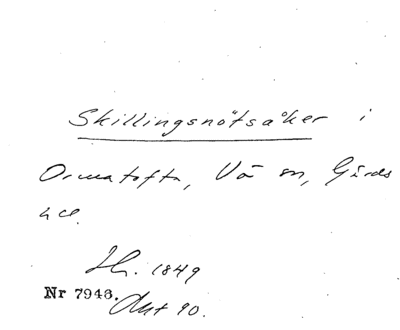 Skillingsnötsåker i
Ormatofta, Vä sn, Gärds
hd.
Sk. 1849
Nr 7948. Akt 90.